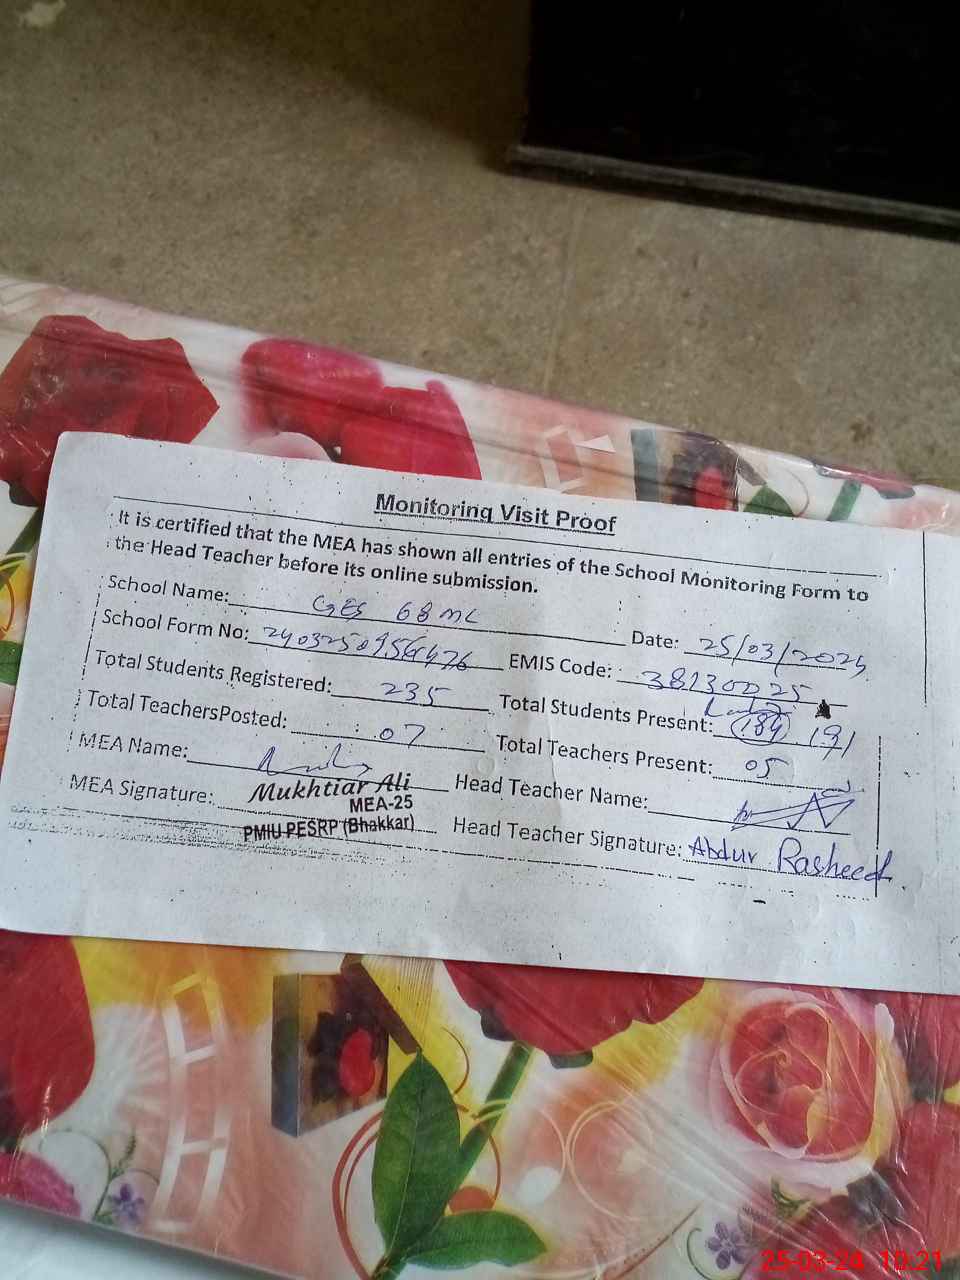 Monitoring Visit Proof
It is certified that the MEA has shown all entries of the School Monitoring Form to
the Head Teacher before its online submission.
School Name: GES 68 ML Date: 25/03/2024
School Form No: EMIS Code: 38130025
Total Students Registered: 235 Total Students Present: 189 191
Total TeachersPosted: 07 Total Teachers Present: 05
MEA Name: Head Teacher Name:
MEA Signature: Mukhtiar Ali Head Teacher Signature: Abdur Rasheed
MEA-25
PMIU PESRP (Bhakkar)
25-03-24 10:21